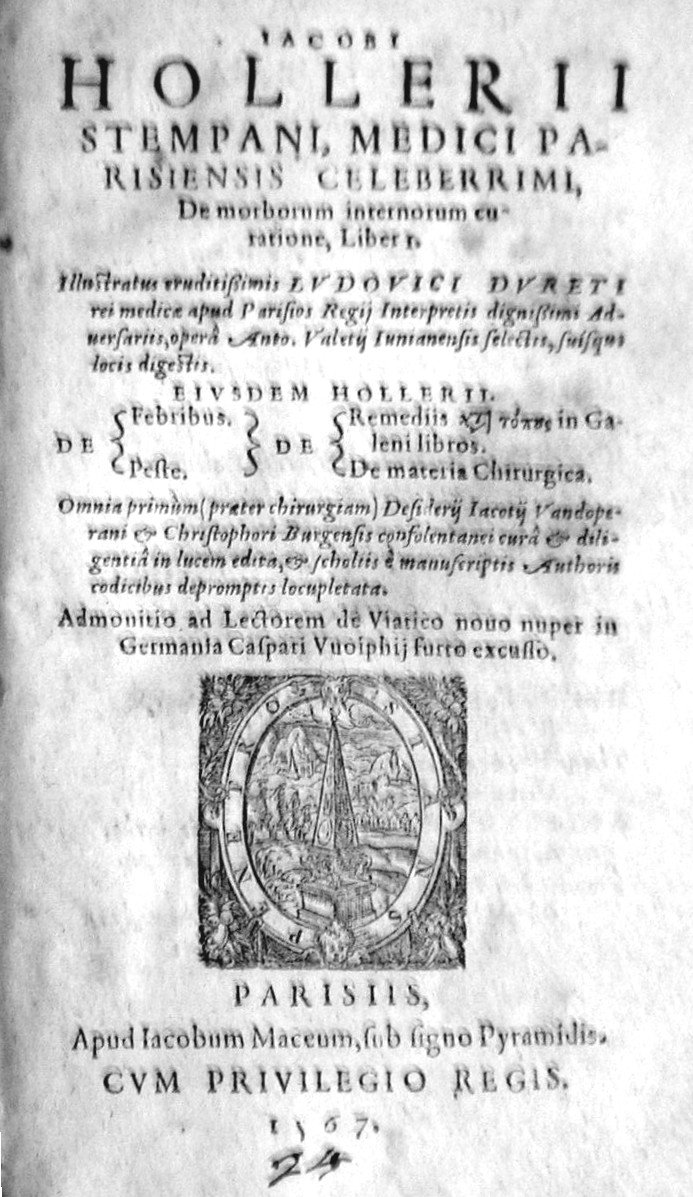 IACOBI
HOLLERII
STEMPANI, MEDICI PA-
RISIENSIS CELEBERRIMI,
De morborum internorum cu-
ratione, Liber I.
Illustratus eruditißimis LVDOVICI DVRETI
rei medicæ apud Parisios Regij Interpretis dignißimi Ad-
uersariis, operâ Anto. Valetij Iunianensis selectis, suisque
locis digestis.
EIVSDEM HOLLERII.
DE { Febribus. } DE { Remediis κατὰ τόπους in Ga-
leni libros.
Peste. De materia Chirurgica.
Omnia primùm (præter chirurgiam) Desiderij Iacotij Vandope-
rani & Christophori Burgensis consolentanei curâ & dili-
gentiâ in lucem edita, & scholiis è manuscriptis Authoris
codicibus depromptis locupletata.
Admonitio ad Lectorem de Viatico nouo nuper in
Germania Caspari Vuolphij furto excusso.
STANS PENETRO
PARISIIS,
Apud Iacobum Maceum, sub signo Pyramidis.
CVM PRIVILEGIO REGIS.
1567.
24